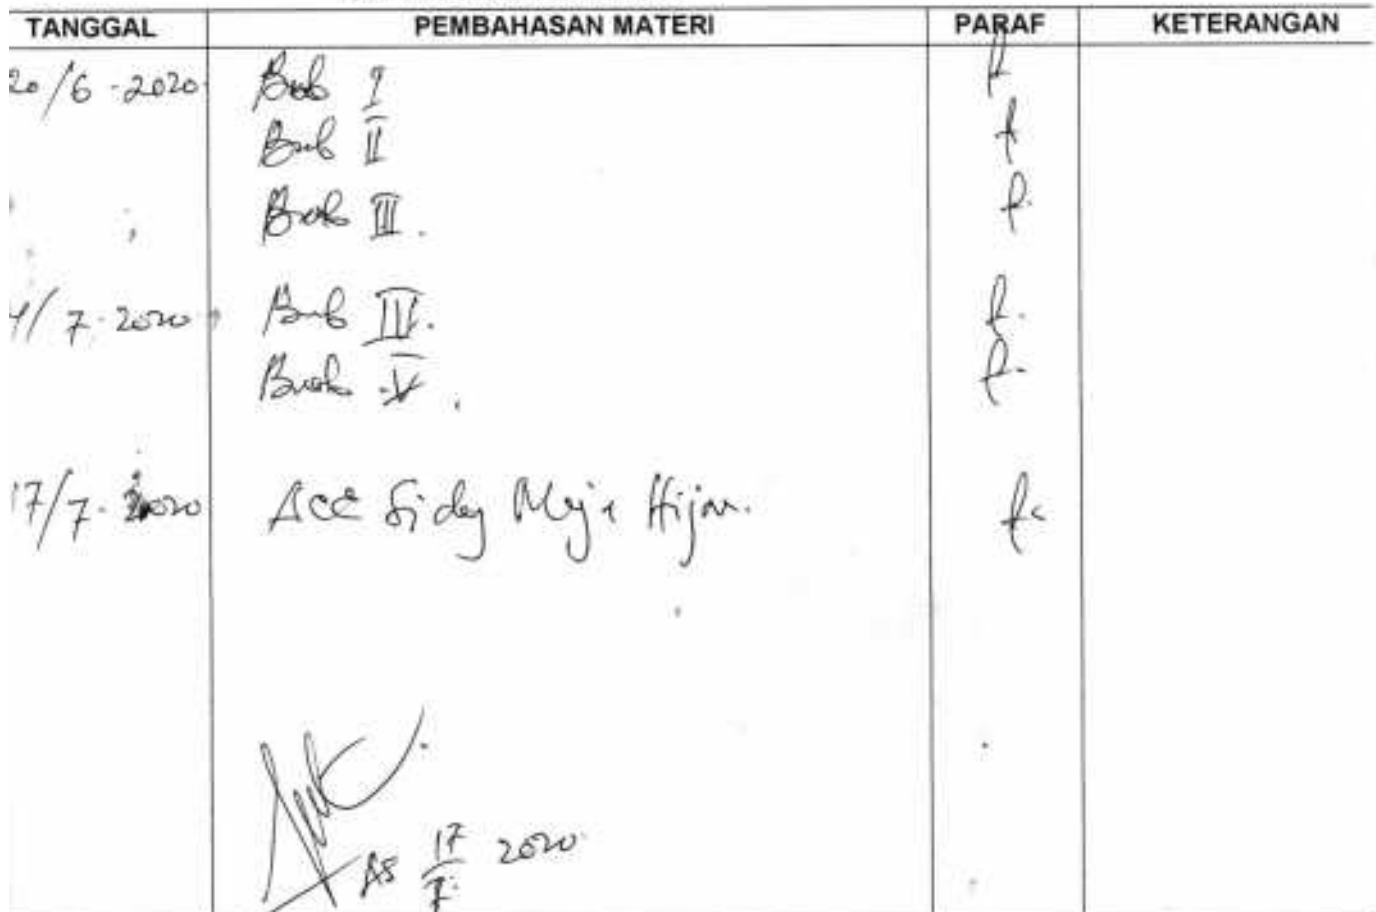 TANGGAL PEMBAHASAN MATERI PARAF KETERANGAN
20/6-2020 Bab I
Bab II
Bab III.
7-2020 Bab IV.
Bab V.
17/7-2020 Acc Sidang Meja Hijau.
17/7 2020